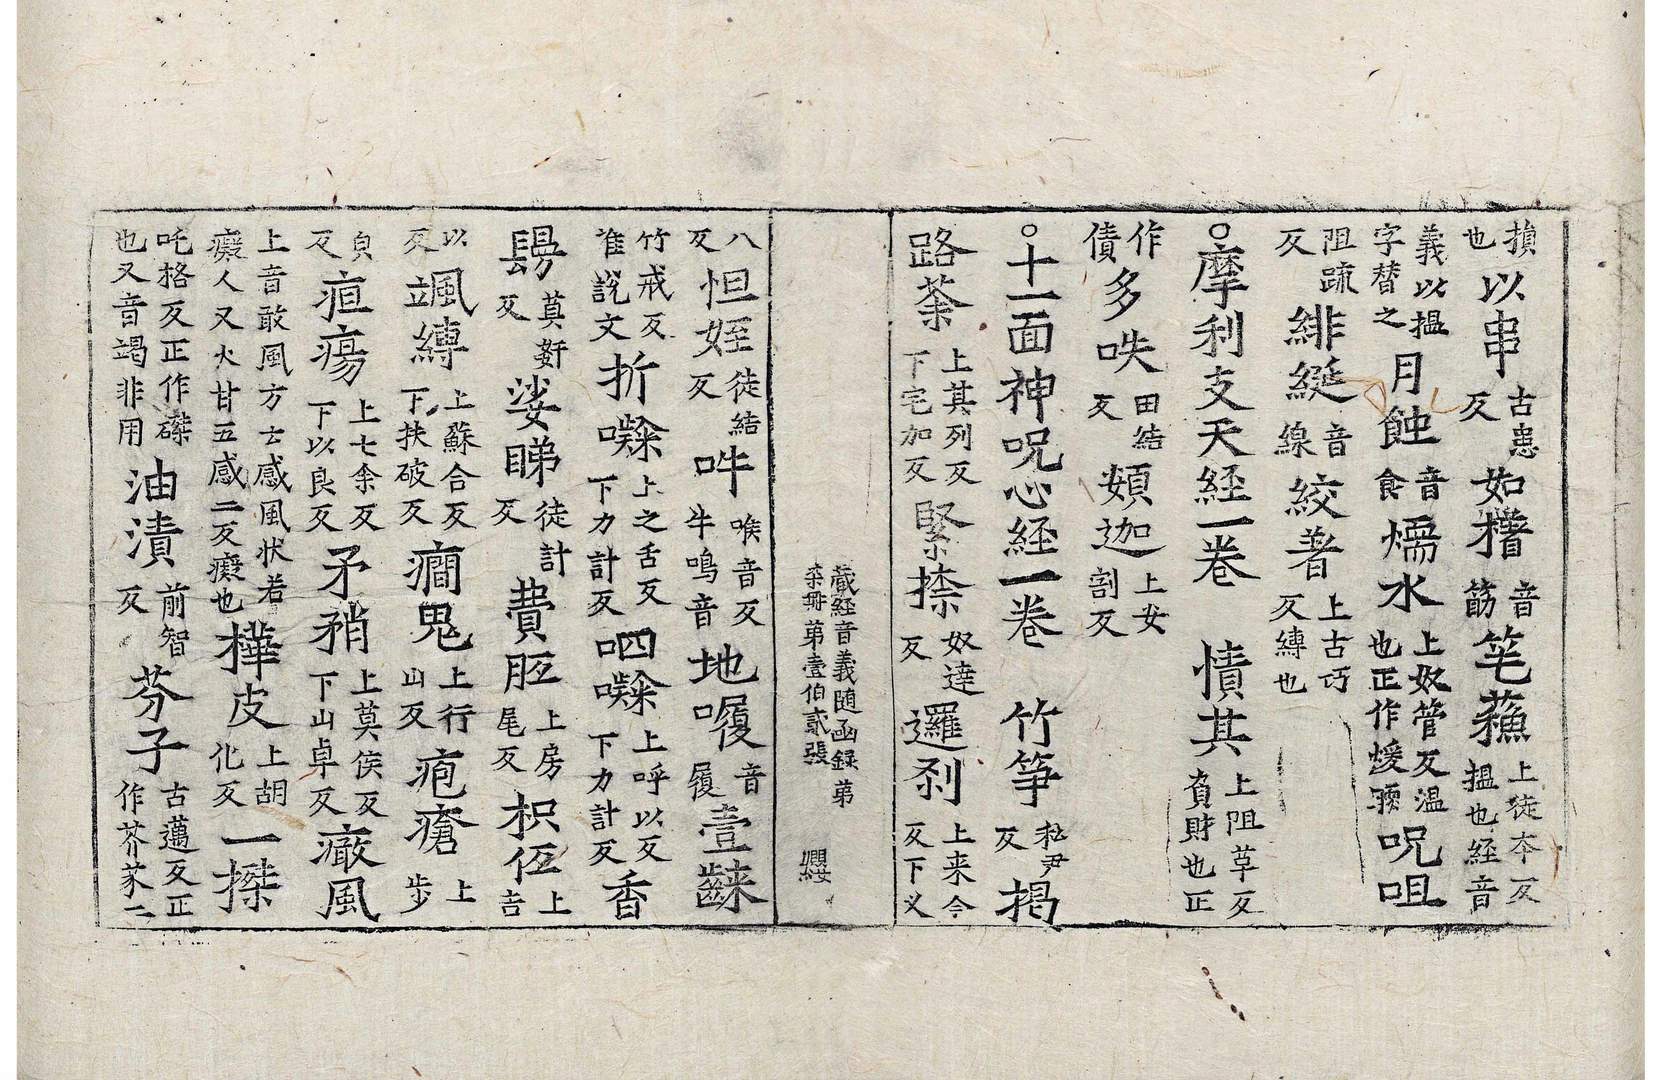 損也以串古患反如𣚃音筋笔蘓上徒本反搵也経音
義以搵字替之月蝕音食煗水上奴管反温也正作煖㬉呪咀
阻䟽反緋綖音線絞著上古巧反縛也
○摩利支天経一卷 憒其上阻草反負財也正
作債多呹田結反頞迦上安割反
○十一面神呪心経一卷 竹筝私尹反掲
路荼上其列反下宅加反緊捺奴達反邏刹上来个反下乂
蔵経音義随函録第
柒冊第壹伯貳張
八反怛姪徒結反吽喉音反牛鳴音地㗧音履壹齼
竹戒反准說文折㘑上之舌反下力計反呬㘑上呼以反下力計反香
䦉莫奸反娑睇徒計反費𦙶上房尾反枳伍上吉
以反颯縛上蘇合反下扶破反癎鬼上行山反疱瘡上步
皃反疽瘍上七余反下以良反矛矟上莫侯反下山卓反㿈風
上音敢風方士感風状若癡人又火甘五感二反癡也樺皮上胡化反一搩
吒格反正作磔也又音竭非用油漬前智反芬子古邁反正作芥䒩二